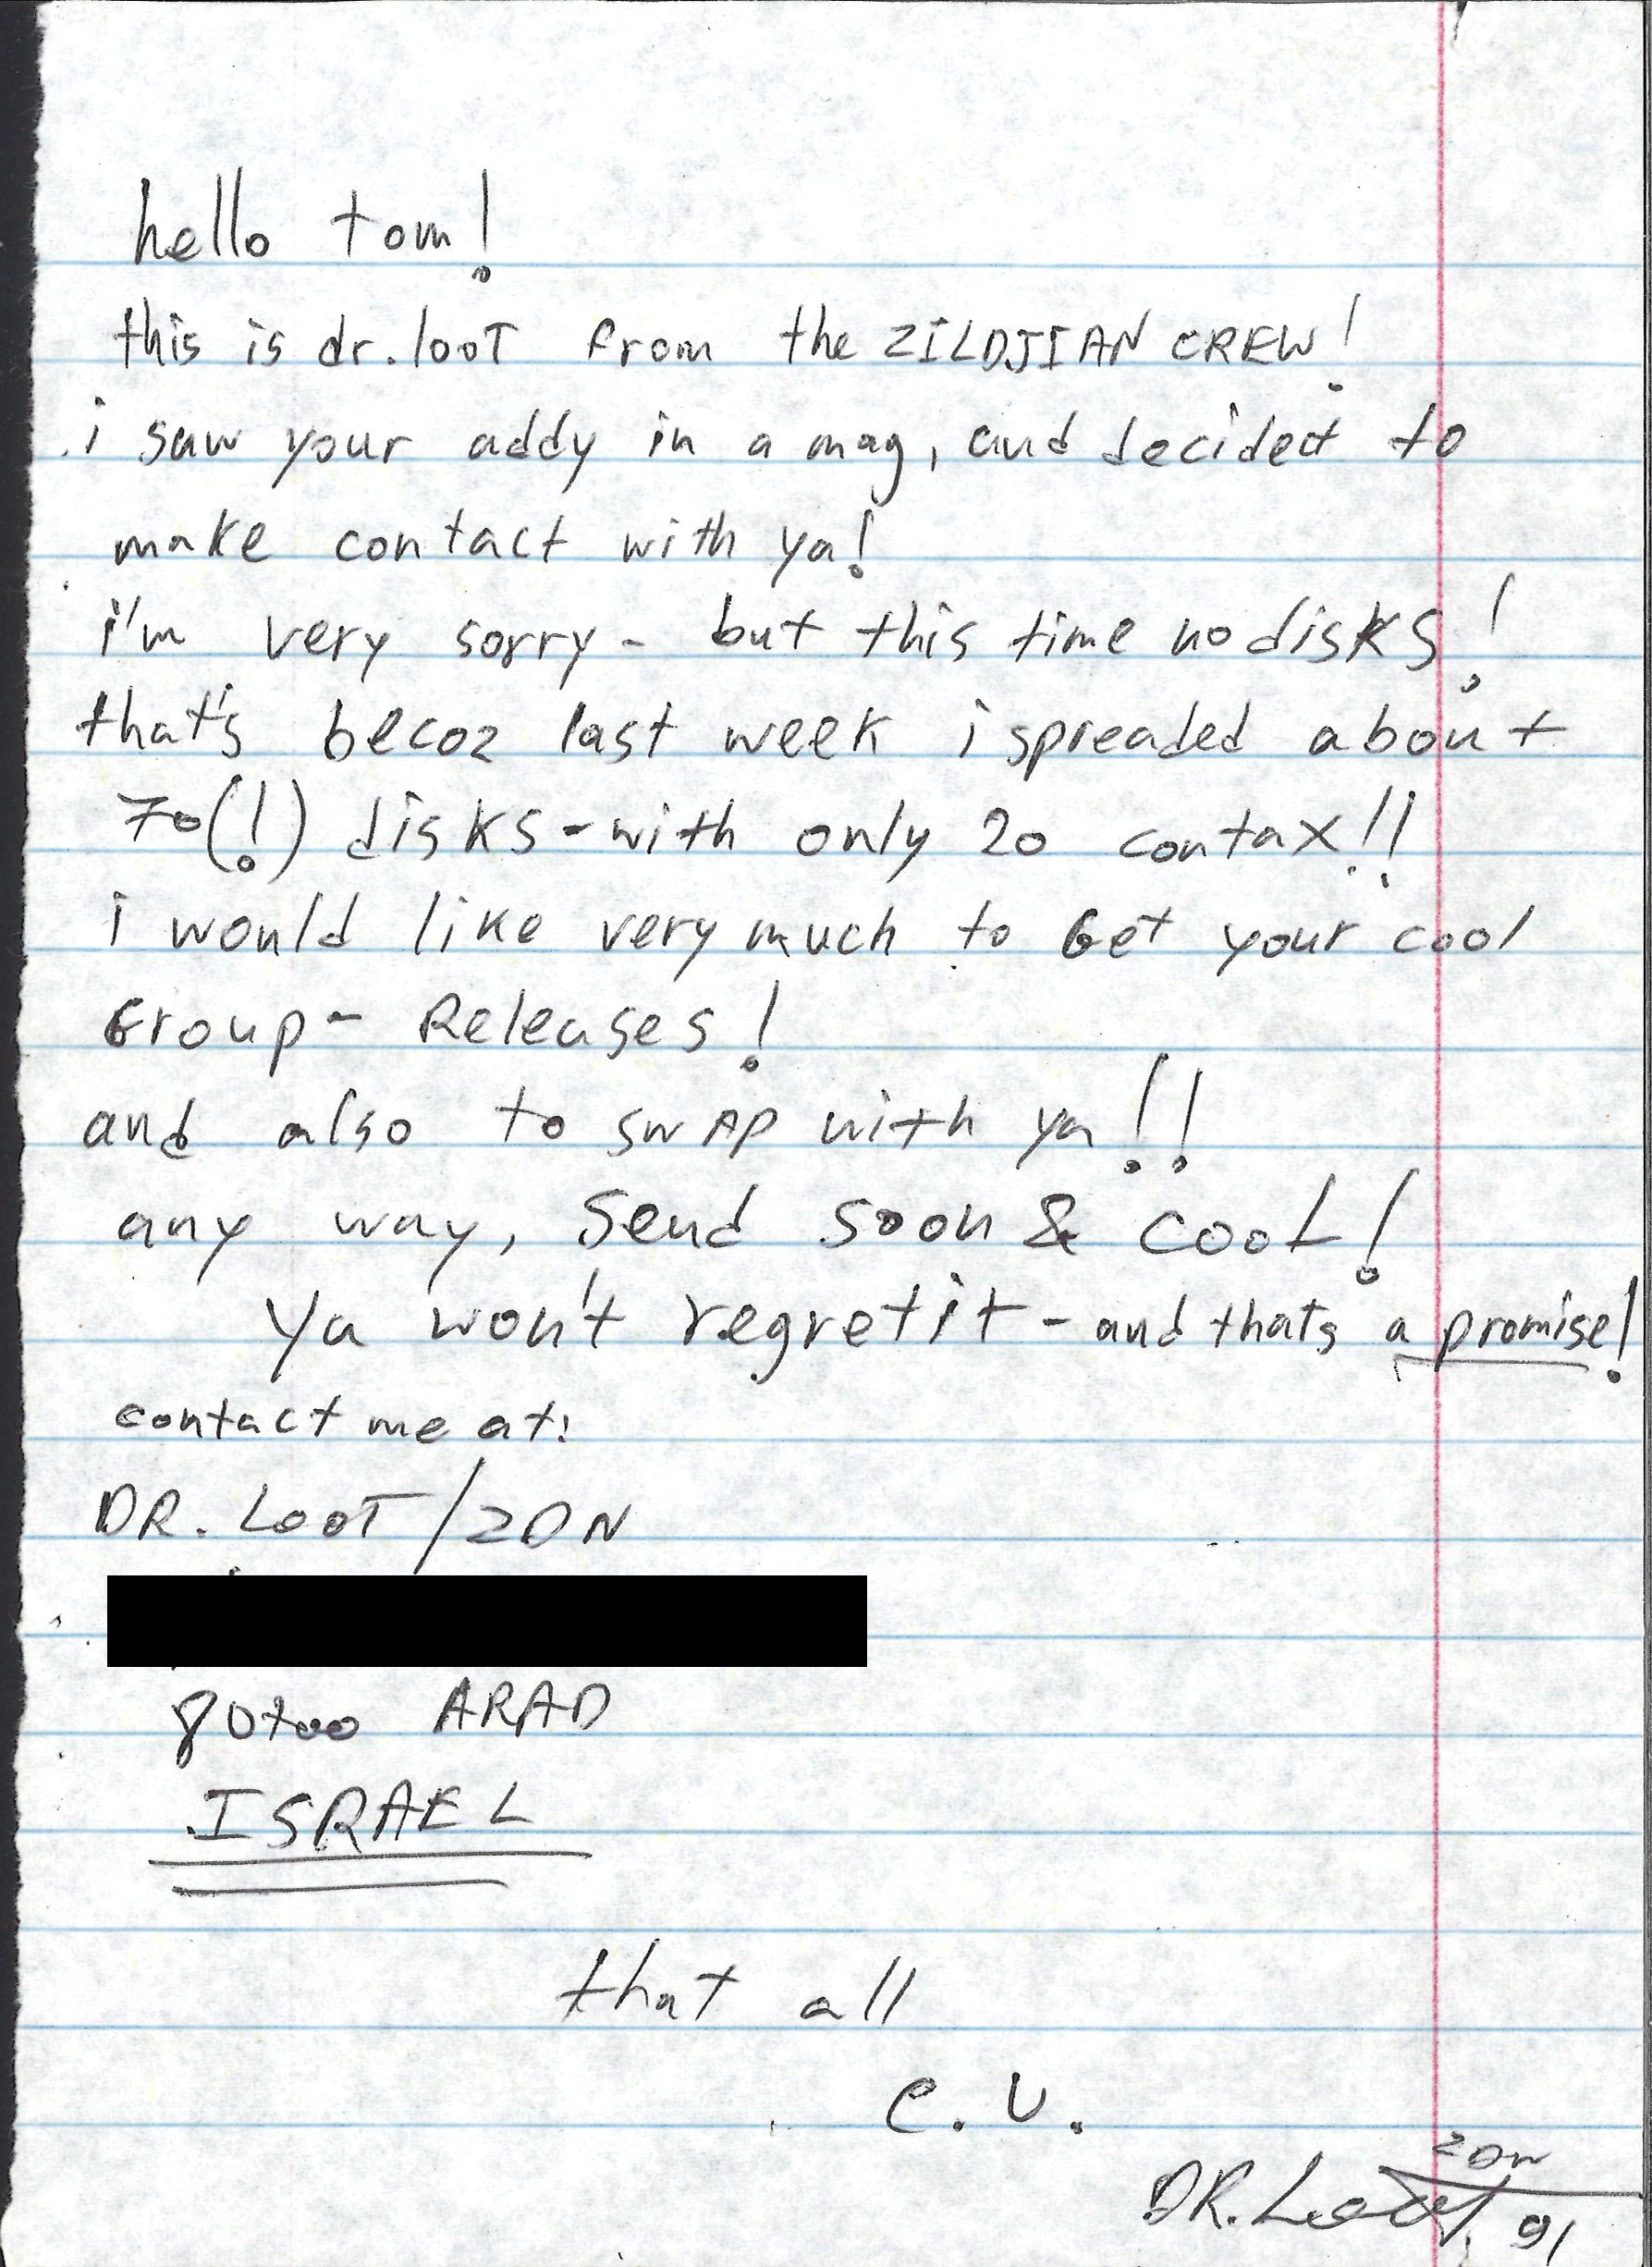 hello tom!
this is dr.looT from the ZILDJIAN CREW!
i saw your addy in a mag, and decided to
make contact with ya!
i'm very sorry - but this time no disks!
that's becoz last week i spreaded about
70(!) disks - with only 20 contax!!
i would like very much to Get your cool
Group - Releases!
and also to swAP with ya!!
any way, Send soon & cooL!
Ya won't regret it - and thats a promise!
contact me at:
DR. LooT / ZDN
80700 ARAD
ISRAEL
that all
C.U.
ZDN
DR. LooT, 91